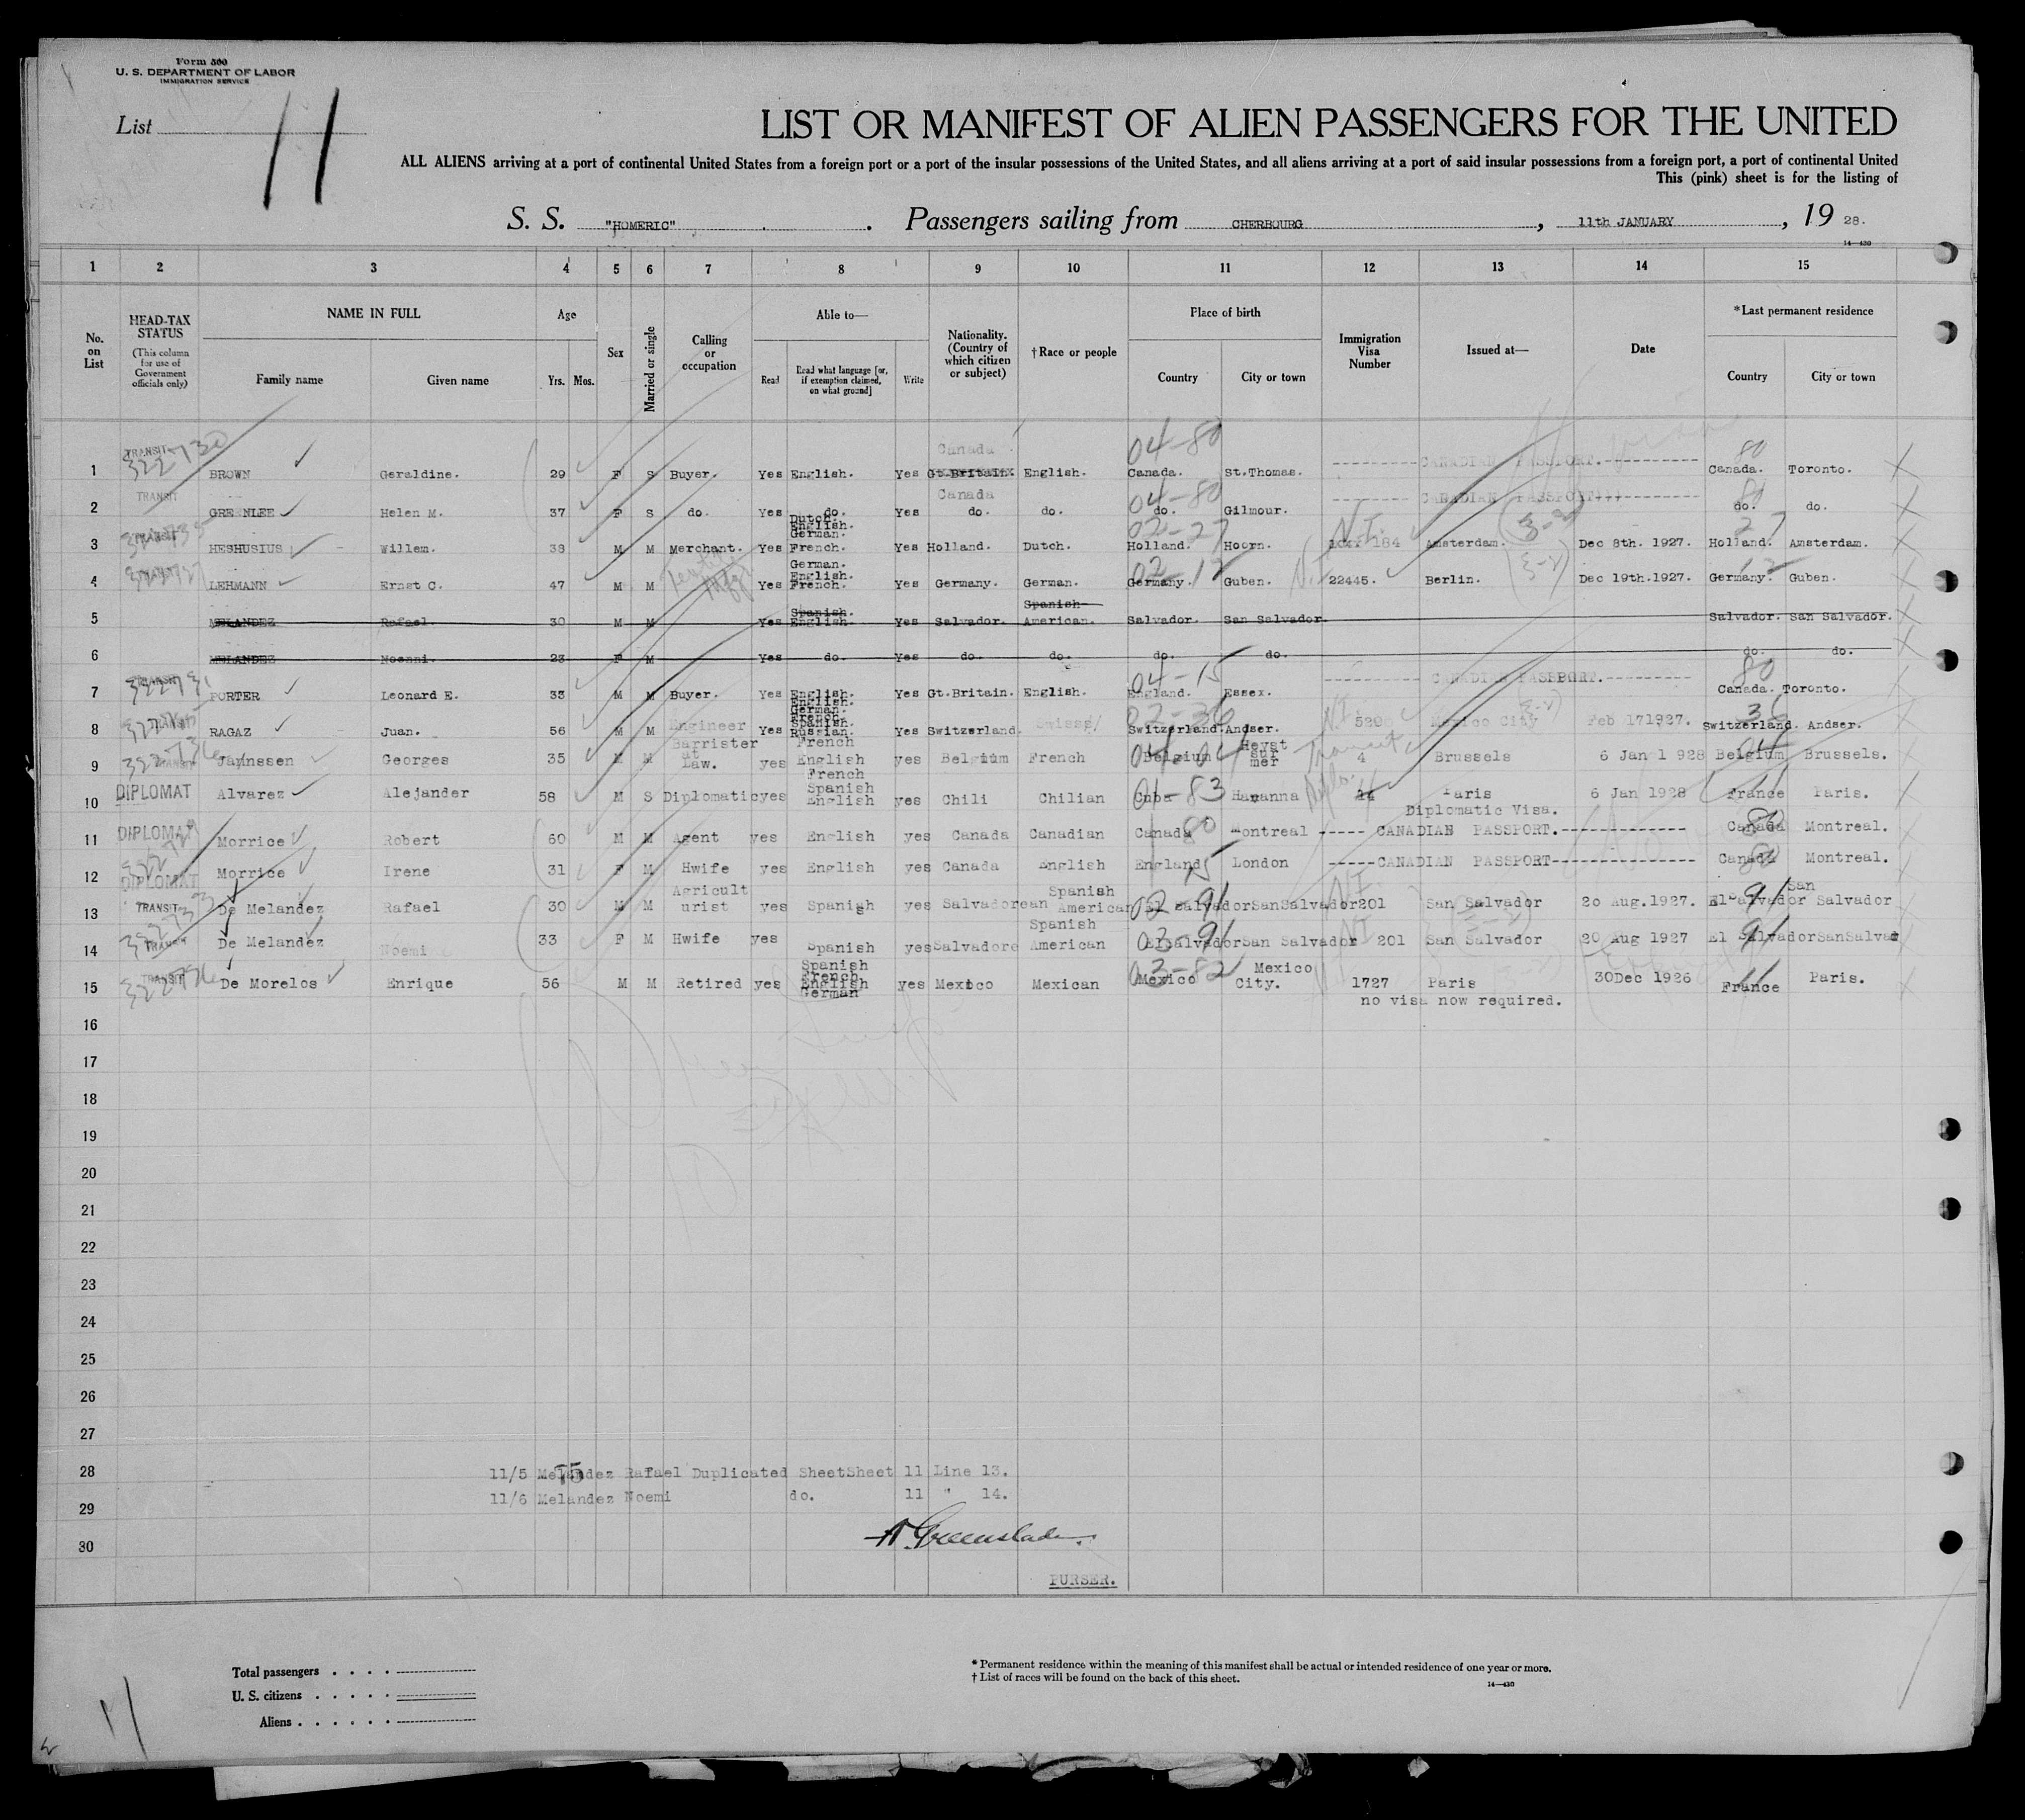 Form 500
U. S. DEPARTMENT OF LABOR
IMMIGRATION SERVICE
List 11
LIST OR MANIFEST OF ALIEN PASSENGERS FOR THE UNITED
ALL ALIENS arriving at a port of continental United States from a foreign port or a port of the insular possessions of the United States, and all aliens arriving at a port of said insular possessions from a foreign port, a port of continental United
This (pink) sheet is for the listing of
S. S. "HOMERIC" . Passengers sailing from CHERBOURG , 11th JANUARY , 19 28.
14—430
1 2 3 4 5 6 7 8 9 10 11 12 13 14 15
No. on List
HEAD-TAX STATUS (This column for use of Government officials only)
NAME IN FULL
Family name Given name
Age
Yrs. Mos.
Sex
Married or single
Calling or occupation
Able to—
Read Read what language [or, if exemption claimed, on what ground] Write
Nationality. (Country of which citizen or subject)
† Race or people
Place of birth
Country City or town
Immigration Visa Number
Issued at—
Date
*Last permanent residence
Country City or town
1 TRANSIT BROWN Geraldine. 29 F S Buyer. Yes English. Yes Gt.Britain Canada English. 04-80 Canada. St.Thomas. CANADIAN PASSPORT. 80 Canada. Toronto.
2 TRANSIT GREENLEE Helen M. 37 F S do. Yes do. Yes Canada do. do. 04-80 do. Gilmour. CANADIAN PASSPORT 80 do. do.
3 TRANSIT HESHUSIUS Willem. 38 M M Merchant. Yes Dutch. English. German. French. Yes Holland. Dutch. 02-27 Holland. Hoorn. 184 Amsterdam. Dec 8th. 1927. 27 Holland. Amsterdam.
4 LEHMANN Ernst C. 47 M M Yes German. English. French. Yes Germany. German. 02-12 Germany. Guben. 22445. Berlin. Dec 19th.1927. 12 Germany. Guben.
5 MELANDEZ Rafael 30 M M Yes Spanish. English. Yes Salvador. Spanish American. Salvador. San Salvador. Salvador. San Salvador.
6 MELANDEZ Noemi. 23 F M Yes do. Yes do. do. do. do. do. do.
7 TRANSIT PORTER Leonard E. 33 M M Buyer. Yes English. Yes Gt.Britain. English. 04-15 England. Essex. CANADIAN PASSPORT. 80 Canada. Toronto.
8 TRANSIT RAGAZ Juan. 56 M M Engineer Yes English. German. French. Spanish. Russian. Yes Switzerland. Swiss 02-36 Switzerland. Andser. N.I. Mexico City Feb 17 1927. 36 Switzerland. Andser.
9 TRANSIT Jannssen Georges 35 M M Barrister at Law. yes French English yes Belgium French 04-04 Belgium Heyst sur mer Transit 4 Brussels 6 Jan 1 928 04 Belgium Brussels.
10 DIPLOMAT Alvarez Alejander 58 M S Diplomatic yes French Spanish English yes Chili Chilian 01-83 Cuba Havanna Paris Diplomatic Visa. 6 Jan 1928 11 France Paris.
11 DIPLOMAT Morrice Robert 60 M M Agent yes English yes Canada Canadian 80 Canada Montreal CANADIAN PASSPORT. 80 Canada Montreal.
12 DIPLOMAT Morrice Irene 31 F M Hwife yes English yes Canada English 15 England London CANADIAN PASSPORT 80 Canada Montreal.
13 TRANSIT De Melandez Rafael 30 M M Agricult urist yes Spanish yes Salvadorean Spanish American 02-91 El Salvador San Salvador N.I. 201 San Salvador 20 Aug.1927. 91 El Salvador San Salvador
14 TRANSIT De Melandez Noemi 33 F M Hwife yes Spanish yes Salvadore Spanish American 03-91 El Salvador San Salvador N.I. 201 San Salvador 20 Aug 1927 91 El Salvador SanSalvad
15 TRANSIT De Morelos Enrique 56 M M Retired yes Spanish French English German yes Mexico Mexican 03-82 Mexico Mexico City. 1727 Paris 30Dec 1926 11 France Paris.
no visa now required.
16
17
18
19
20
21
22
23
24
25
26
27
28 11/5 Melandez Rafael Duplicated SheetSheet 11 Line 13.
29 11/6 Melandez Noemi do. 11 " 14.
30 Greenslade.
PURSER.
Total passengers . . . .
U. S. citizens . . . . .
Aliens . . . . . .
* Permanent residence within the meaning of this manifest shall be actual or intended residence of one year or more.
† List of races will be found on the back of this sheet.
14—430
11